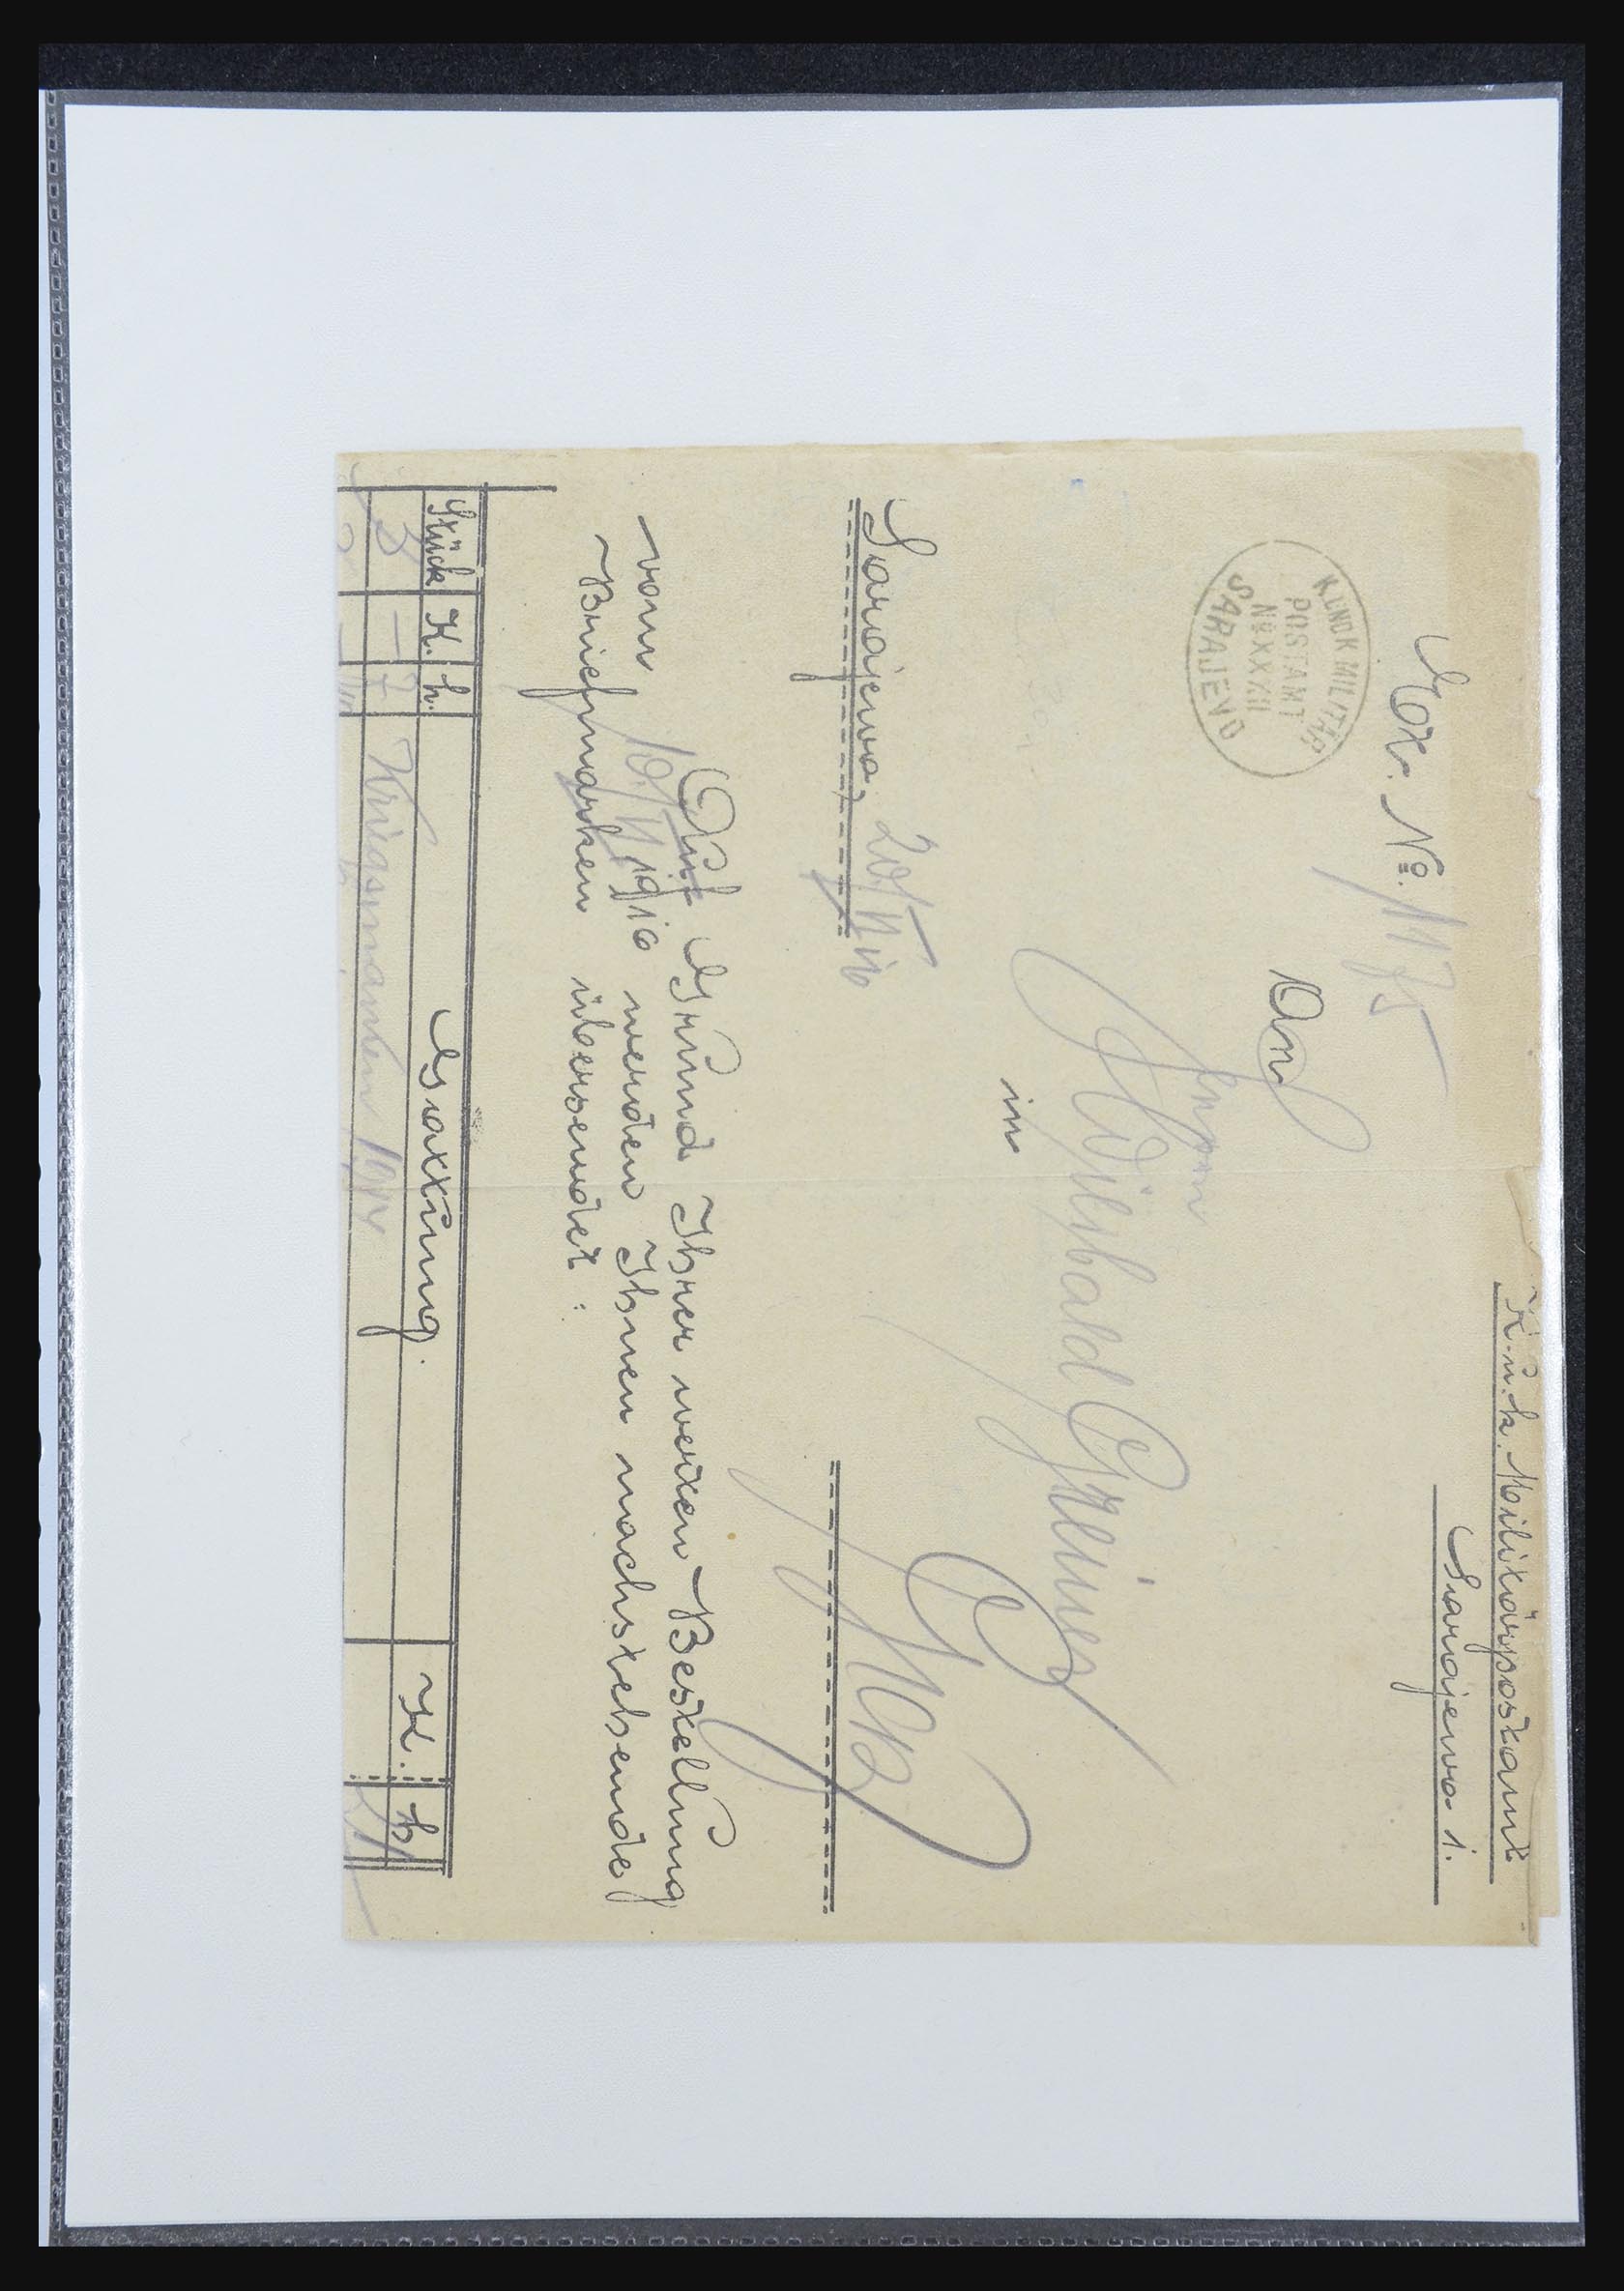 K.u.k. Militärpostamt
Sarajevo 1.
Ex. №. 1175
K. UND K. MILITÄR
POSTAMT
№ XXXIII
SARAJEVO
An
Herrn
Wilibald Greiner
in
Graz
Sarajevo, 20/V 1916
Auf Grund Ihrer werten Bestellung
vom 10/V 1916 werden Ihnen nachstehende
Briefmarken übersendet:
Stück K. h. Gattung. K. h.
Kriegsmarken 1914